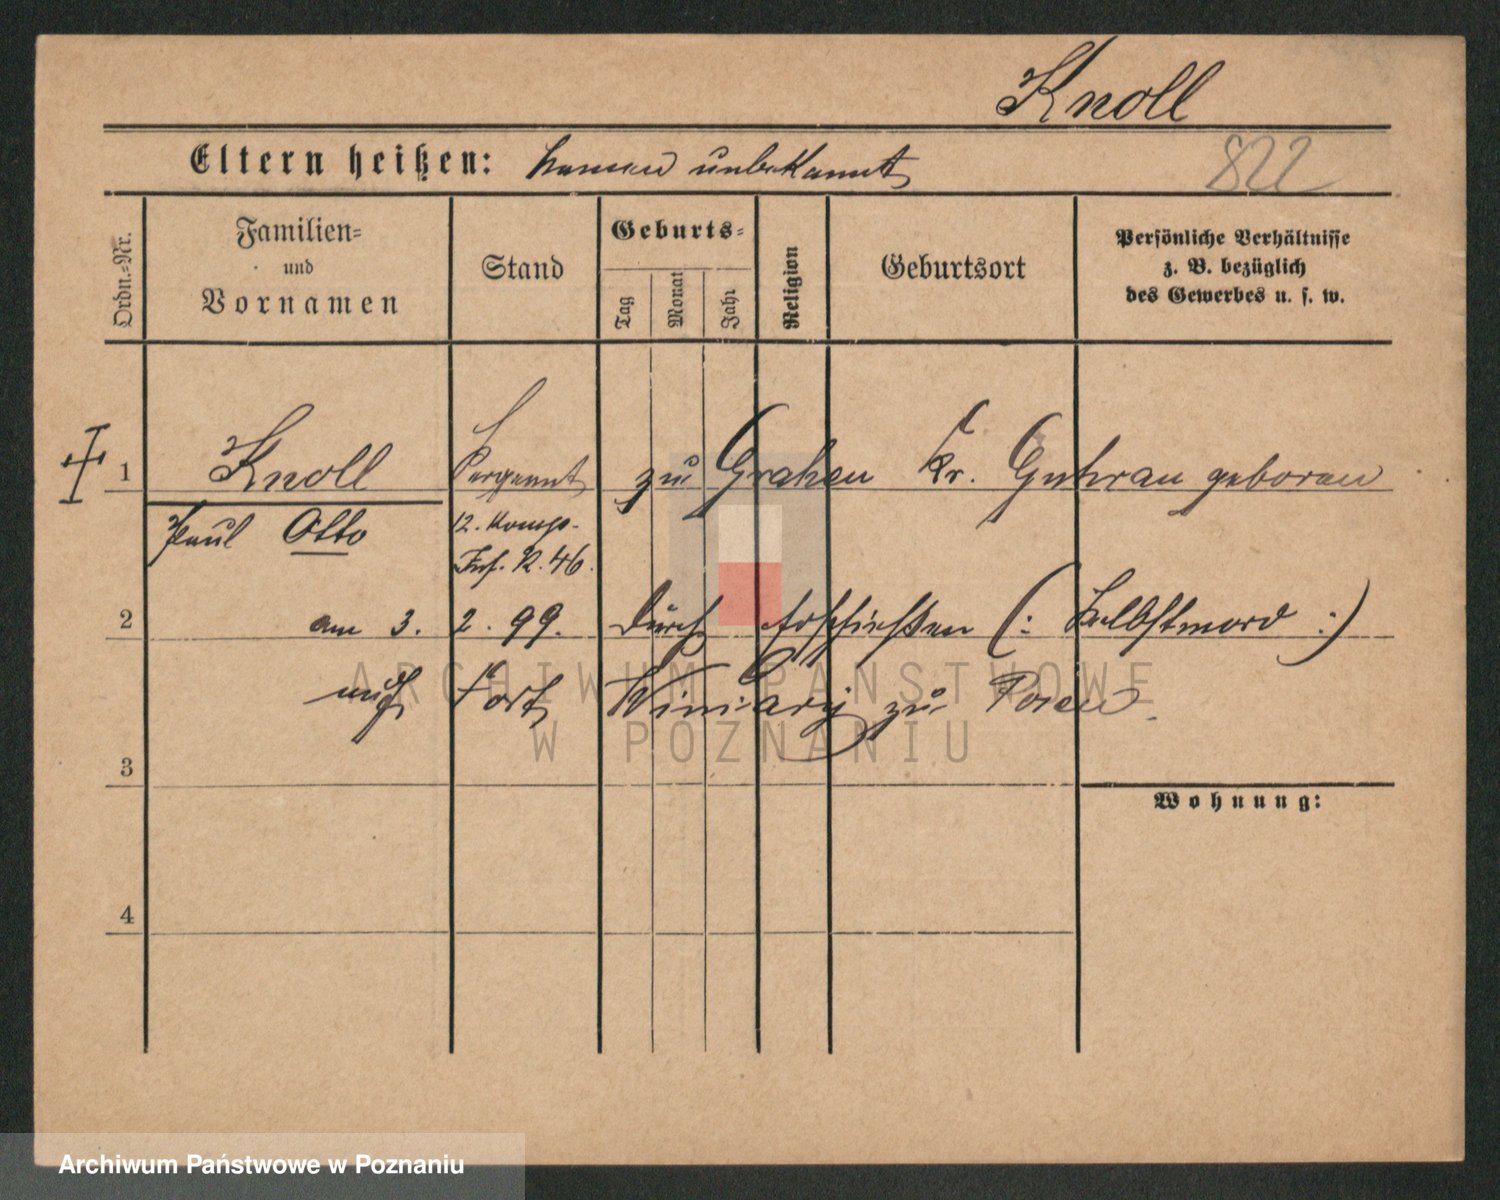 Knoll
Eltern heißen: Namen unbekannt
822
Ordn.-Nr.
Familien-
und
Vornamen
Stand
Geburts-
Tag
Monat
Jahr
Religion
Geburtsort
Persönliche Verhältnisse
z. B. bezüglich
des Gewerbes u. s. w.
1 Knoll Sergeant zu Grahen Kr. Guhrau geboren
Paul Otto 12. Komp.
Inf. R. 46.
2 am 3. 2. 99. durch Erschießen (: Selbstmord :)
auf Fort Winiary zu Posen.
3
Wohnung:
4
ARCHIWUM PAŃSTWOWE
W POZNANIU
Archiwum Państwowe w Poznaniu